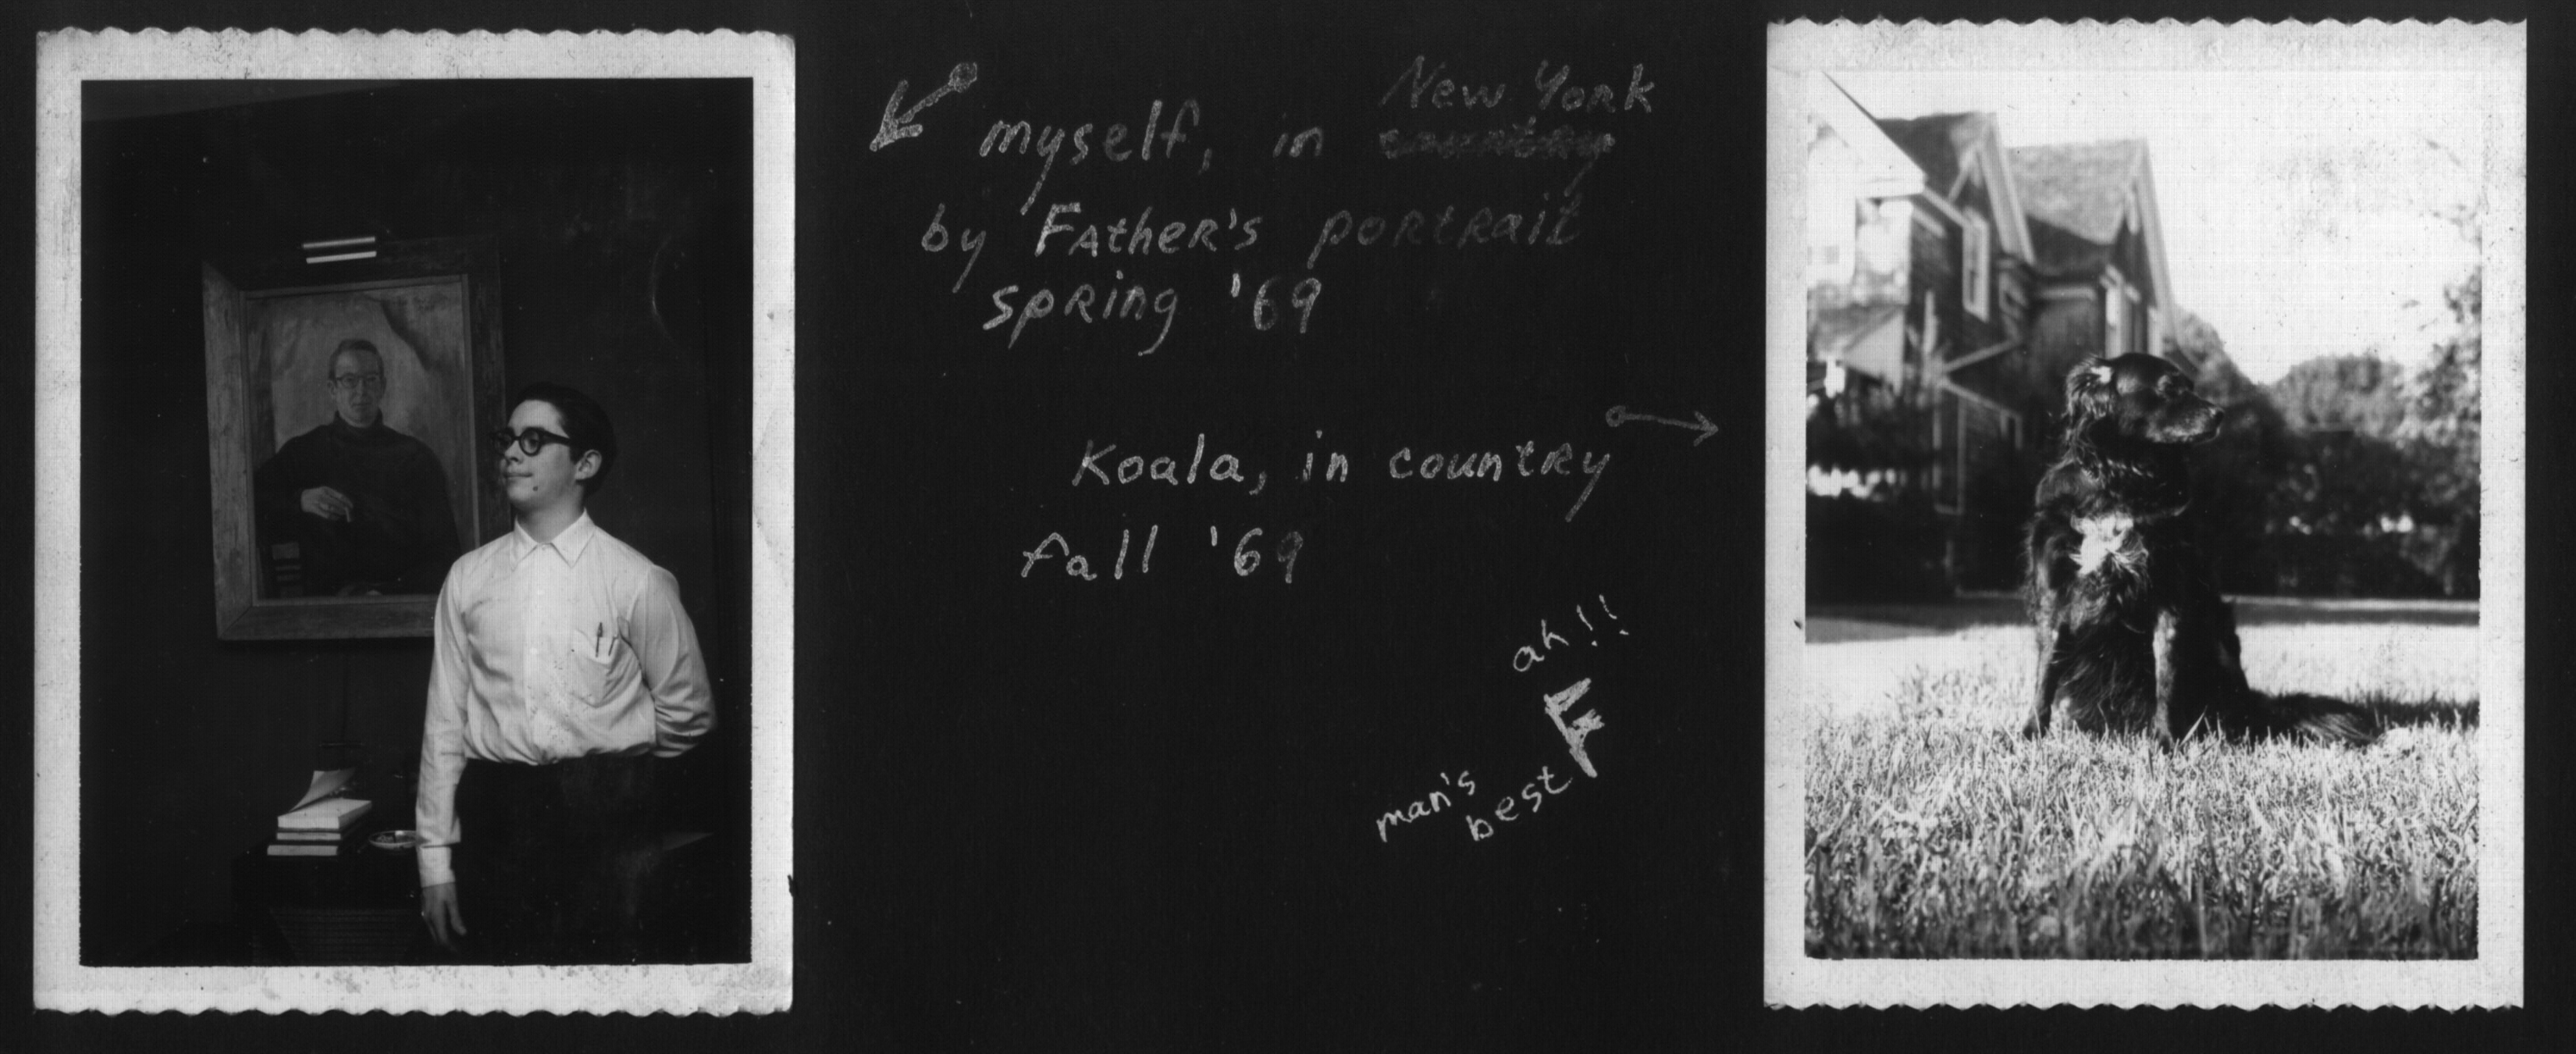 myself, in New York
country
by Father's portrait
spring '69
Koala, in country
fall '69
ah!!
man's
best